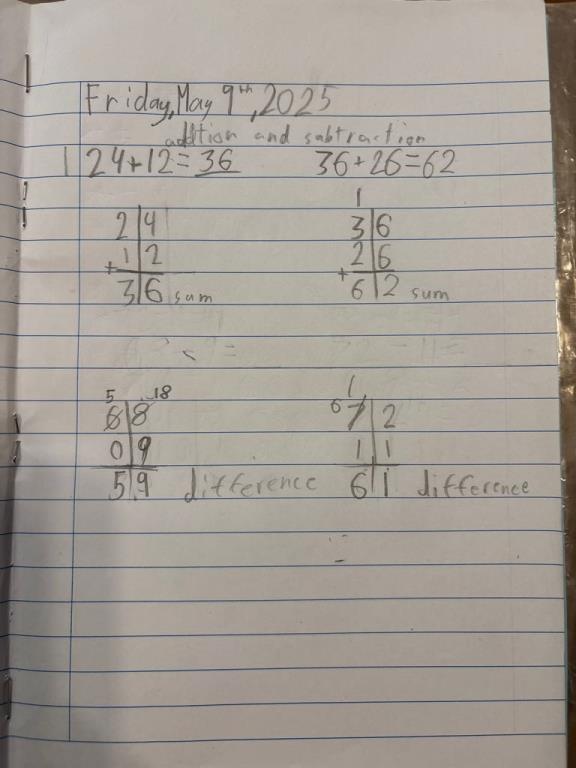 Friday, May 9th, 2025
addtion and subtraction
1 24+12=36 36+26=62
1
2 4 3 6
+ 1 2 + 2 6
3 6 sum 6 2 sum
5 18 1
6 8 6 7 2
0 9 1 1
5 9 difference 6 1 difference